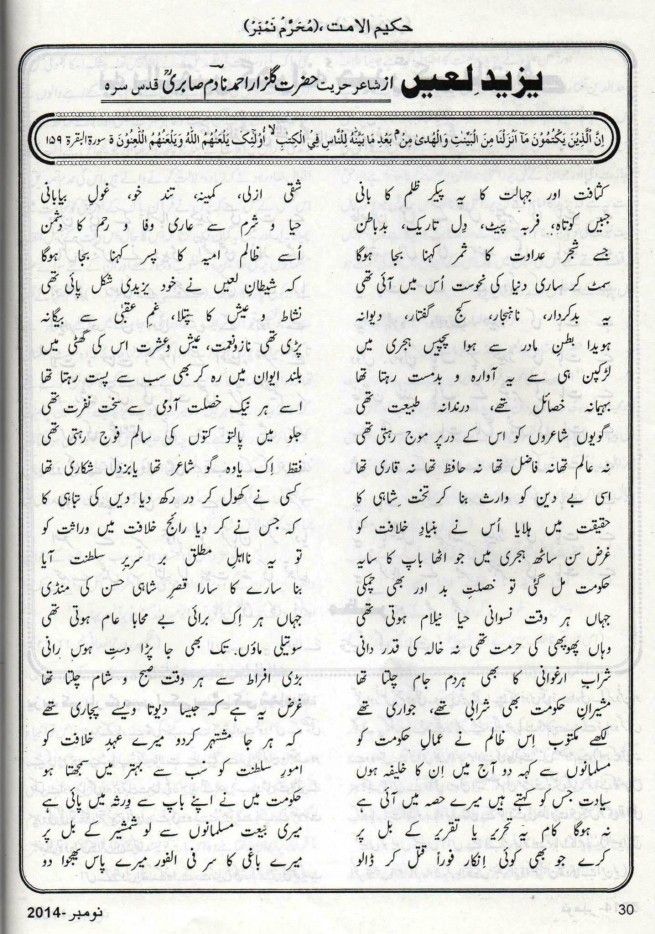 حکیم الامت، (مُحَرَّمْ نَمْبَرْ)
یزیدِ لعیں از شاعر حریت حضرت گلزار احمد نادم صابریؒ قدس سرہ
اِنَّ الَّذِیْنَ یَکْتُمُوْنَ مَآ اَنْزَلْنَا مِنَ الْبَیِّنٰتِ وَالْھُدٰی مِنْۢ بَعْدِ مَا بَیَّنّٰهُ لِلنَّاسِ فِی الْکِتٰبِ ۙ اُولٰٓئِکَ یَلْعَنُهُمُ اللّٰهُ وَیَلْعَنُهُمُ اللّٰعِنُوْنَ ۃ سورۃ البقرۃ ۱۵۹
کثافت اور جہالت کا یہ پیکر ظلم کا بانی شقی ازلی، کمینہ، تند خو، غولِ بیابانی
جبیں کوتاہ، فربہ پیٹ، دِل تاریک، بدباطن حیا و شرم سے عاری وفا و رحم کا دشمن
جسے شجرِ عداوت کا ثمر کہنا بجا ہوگا اُسے ظالم امیہ کا پسر کہنا بجا ہوگا
سمٹ کر ساری دنیا کی نحوست اُس میں آئی تھی کہ شیطانِ لعیں نے خود یزیدی شکل پائی تھی
یہ بدکردار، ناہنجار، کج گفتار، دیوانہ نشاط و عیش کا پتلا، غمِ عقبیٰ سے بیگانہ
ہویدا بطنِ مادر سے ہوا پچیس ہجری میں پڑی تھی نازونعمت، عیش وعشرت اس کی گھٹی میں
لڑکپن ہی سے یہ آوارہ و بدمست رہتا تھا بلند ایوان میں رہ کر بھی سب سے پست رہتا تھا
بہیمانہ خصائل تھے، درندانہ طبیعت تھی اسے ہر نیک خصلت آدمی سے سخت نفرت تھی
گویوں شاعروں کو اس کے در پر موج رہتی تھی جلو میں پالتو کتوں کی سالم فوج رہتی تھی
نہ عالم تھا نہ فاضل تھا نہ حافظ تھا نہ قاری تھا فقط اِک یاوہ گو شاعر تھا یا بزدل شکاری تھا
اسی بے دین کو وارث بنا کر تختِ شاہی کا کسی نے کھول کر در رکھ دیا دیں کی تباہی کا
حقیقت میں ہلایا اُس نے بنیادِ خلافت کو کہ جس نے کر دیا رائج خلافت میں وراثت کو
غرض سن ساٹھ ہجری میں جو اٹھا باپ کا سایہ تو یہ نااہلِ مطلق بر سریرِ سلطنت آیا
حکومت مل گئی تو خصلتِ بد اور بھی چمکی بنا سارے کا سارا قصرِ شاہی حسن کی منڈی
جہاں ہر وقت نسوانی حیا نیلام ہوتی تھی جہاں ہر اِک برائی بے محابا عام ہوتی تھی
وہاں پھوپھی کی حرمت تھی نہ خالہ کی قدر دانی سوتیلی ماؤں تک بھی جا پڑا دستِ ہوس رانی
شرابِ ارغوانی کا بھی ہردم جام چلتا تھا بڑی افراط سے ہر وقت صبح و شام چلتا تھا
مشیرانِ حکومت بھی شرابی تھے، جواری تھے غرض یہ ہے کہ جیسا دیوتا ویسے پجاری تھے
لکھے مکتوب اِس ظالم نے عمالِ حکومت کو کہ ہر جا مشتہر کردو میرے عہدِ خلافت کو
مسلمانوں سے کہہ دو آج میں اِن کا خلیفہ ہوں امورِ سلطنت کو سب سے بہتر میں سمجھتا ہو
سیادت جس کو کہتے ہیں میرے حصہ میں آئی ہے حکومت میں نے اپنے باپ سے ورثہ میں پائی ہے
نہ ہوگا کام یہ تحریر یا تقریر کے بل پر میری بیعت مسلمانوں سے لو شمشیر کے بل پر
کرے جو بھی کوئی اِنکار فوراً قتل کر ڈالو میرے باغی کا سر فی الفور میرے پاس بھیجوا دو
30
نومبر -2014